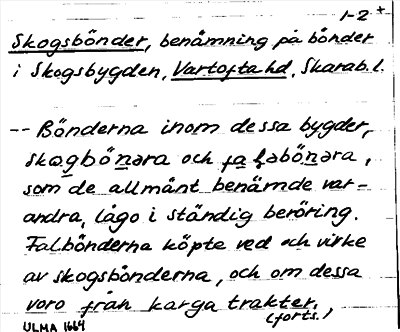 1-2+
Skogsbönder, benämning på bönder
i Skogsbygden, Vartofta hd, Skarab. l.
-- Bönderna inom dessa bygder,
skogbönəra och faləbönəra,
som de allmänt benämde var-
andra, lågo i ständig beröring.
Falbönderna köpte ved och virke
av skogsbönderna, och om dessa
voro från karga trakter,
(forts.)
ULMA 1664